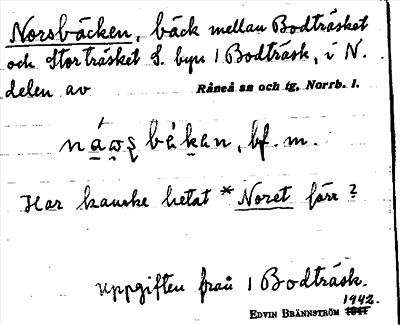 Norsbäcken, bäck mellan Bodträsket
och Storträsket S. byn 1 Bodträsk, i N.
delen av Råneå sn och tg, Norrb. l.
bäkan, bf. m.
Har kanske hetat *Noret förr?
Uppgiften från 1 Bodträsk.
1942.
EDVIN BRÄNNSTRÖM 1941